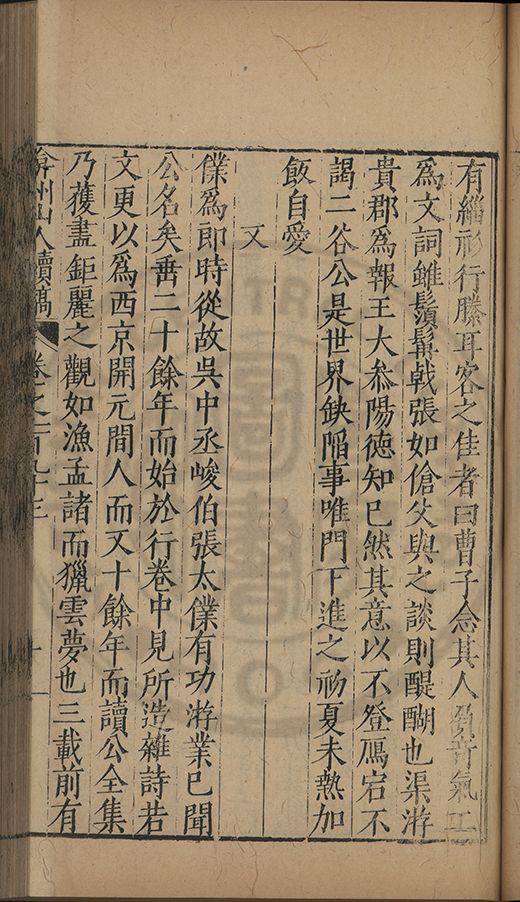 有緇衫行縢耳客之佳者曰曹子念其人負奇氣工
爲文詞雖鬚髯戟張如傖父與之談則醍醐也渠游
貴郡爲報王大叅陽德知已然其意以不登鴈宕不
謁二谷公是世界缺陷事唯門下進之初夏未熱加
飯自愛
又
僕爲郎時從故吳中丞峻伯張太僕有功游業已聞
公名矣垂二十餘年而始於行卷中見所造雜詩若
文更以爲西京開元間人而又十餘年而讀公全集
乃獲盡鉅麗之觀如漁孟諸而獵雲夢也三載前有
弇州山人續稿 卷之一百九十三 十一